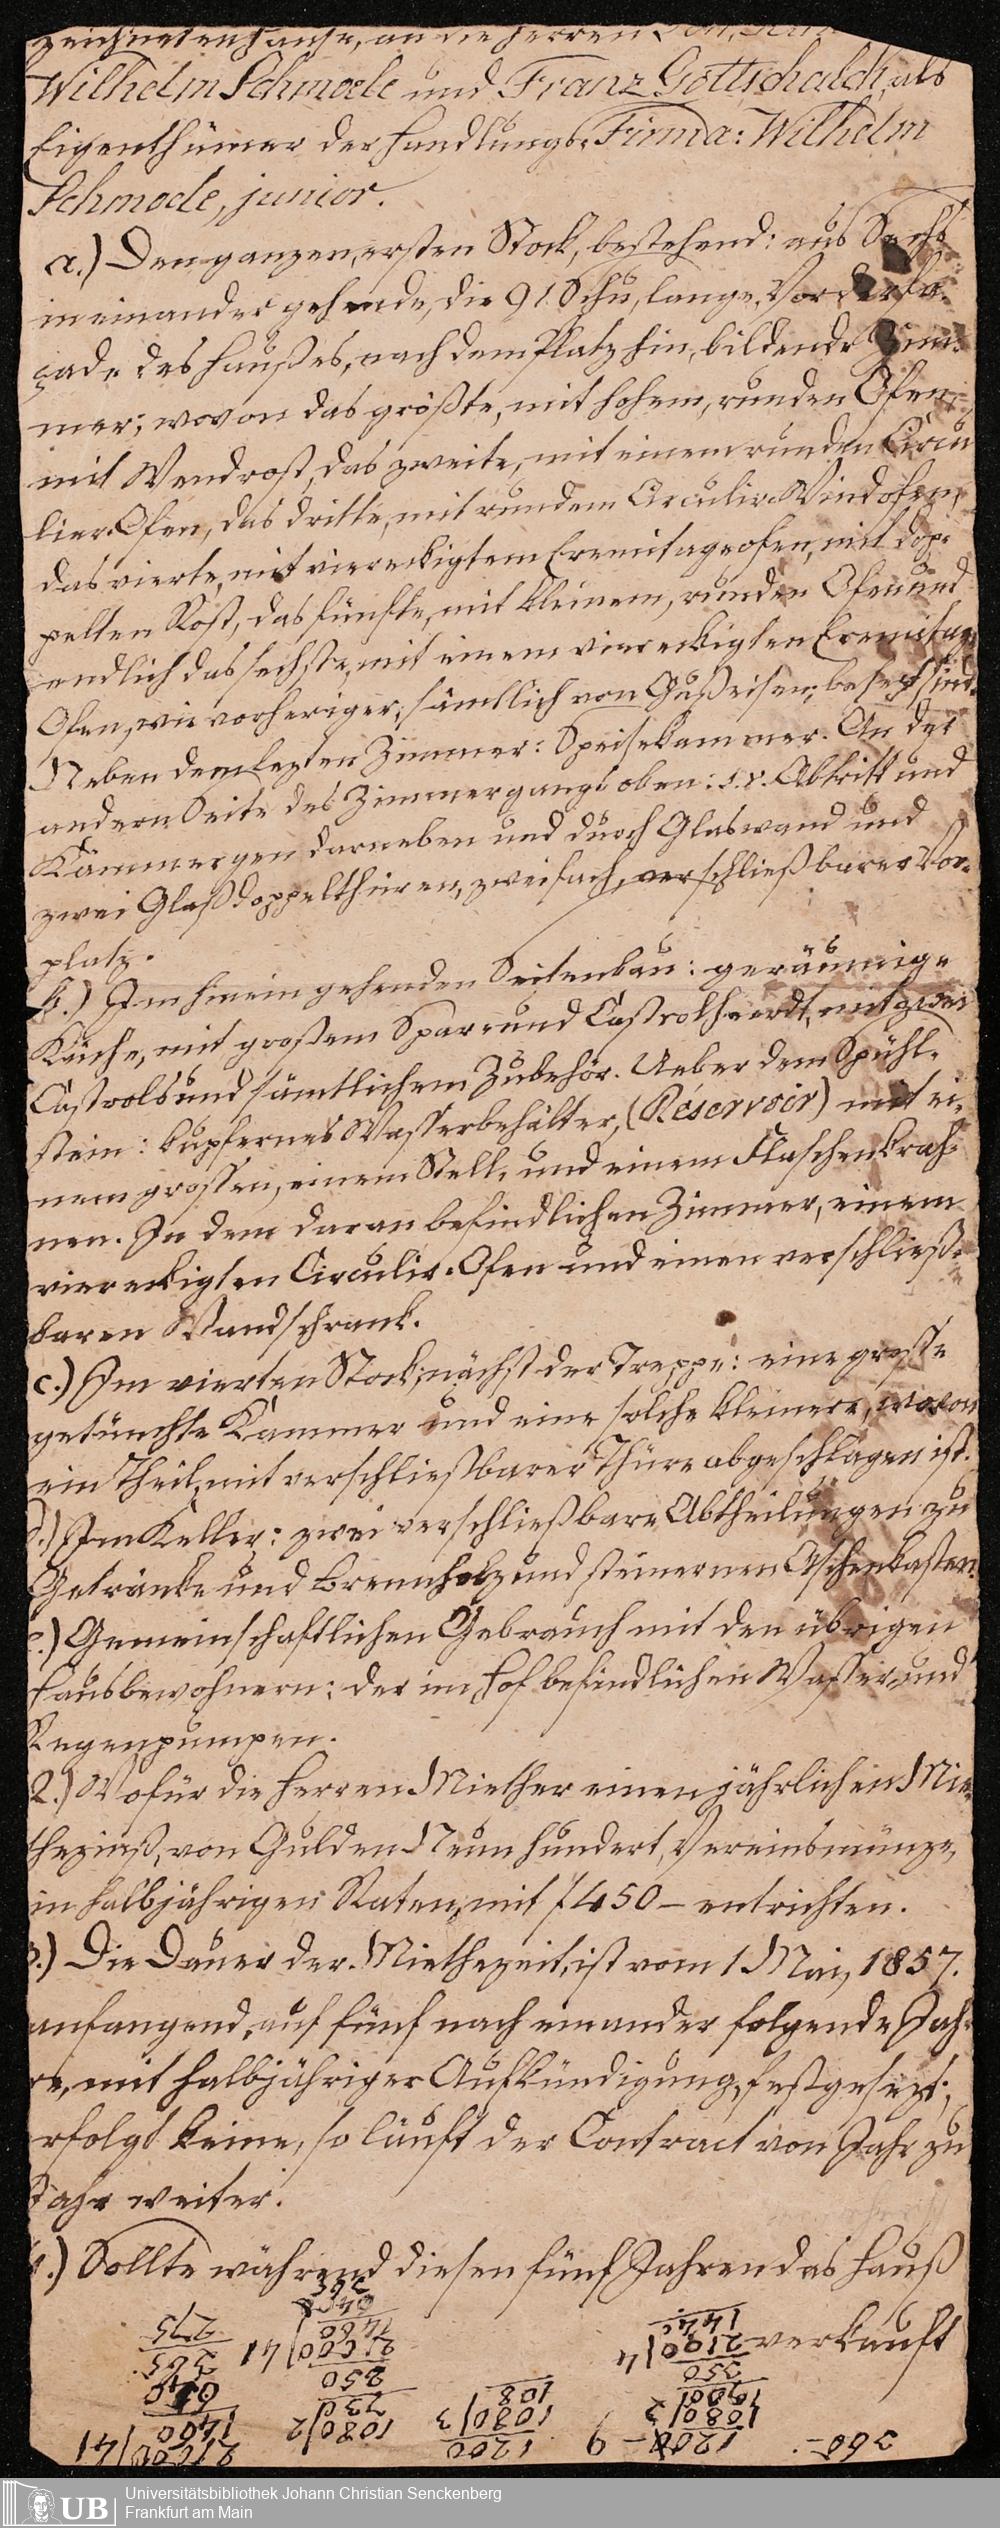 zeichneten Hause, an die Herren
Wilhelm Schmoele und Franz Gottschalck, als
Eigenthümer der Handlungs-Firma: Wilhelm
Schmoele, junior.
a.) Den ganzen, ersten Stock, bestehend: aus Sechs
in einander gehende, die 91. Schu, lange, Vorderfa-
çade des Haußes, nach dem Platz hin, bildende Zim-
mer; wovon das größte, mit hohem, runden Ofen,
mit Wendrost, das zweite, mit einem runden Circu
lier-Ofen, das dritte, mit rundem Circulir-Windofen,
das vierte, mit viereckigtem Eremitageofen, mit dop-
pelten Rost, das fünfte, mit kleinem, runden Ofen und
endlich das sechste, mit einem viereckigten Eremitage
Ofen, wie vorheriger; sämtlich von Gußeisen, besezt sind.
Neben dem lezten Zimmer: Speisekammer. An der
andern Seite des Zimmergangs oben: s.v. Abtritt und
Kämmergen darneben und durch Glaswand und
zwei Glaßdoppelthüren, zweifach, verschließbarer Vor-
platz.
b.) Im hinein gehenden Seitenbau: geräumige
Küche, mit großem Spar- und Castrolheerdt, mit zwei
Castrols und sämtlichem Zubehör. Ueber dem Spühl-
stein: kupfernes Wasserbehälter, (Réservoir) mit ei-
nem grossen, einem Stell- und einem Flaschenkrah-
nen. In dem daran befindlichen Zimmer, einem
viereckigten Circulir-Ofen und einen verschließ-
baren Wandschrank.
c.) Im vierten Stock, nächst der Treppe: eine grosse
getünchte Kammer und eine solche kleinere, wovon
ein Theil, mit verschließbarer Thüre abgeschlagen ist.
d.) Im Keller: zwei verschließbare Abtheilungen zu
Getränke und Brennholz und steinernen Aschenkasten.
e.) Gemeinschaftlichen Gebrauch mit den übrigen
Hausbewohnern: der im Hof befindlichen Wasser- und
Regenpumpen.
2.) Wofür die Herren Miether einen jährlichen Mie-
thezinß, von Gulden Neun hundert, Vereinsmünze,
in halbjährigen Raten, mit f 450 – entrichten.
3.) Die Dauer der Miethezeit, ist vom 1 Mai, 1857.
anfangend, auf fünf nach einander folgende Jah-
re, mit halbjähriger Aufkündigung, festgesezt;
erfolgt keine, so läuft der Contract von Jahr zu
Jahr weiter.
4.) Sollte während diesen fünf Jahren das Hauß
verkauft
360 –.
1200 – 9
1080/3
350
2190/4
1200
1080/3
108
1080/2
730
350
1460
365
275